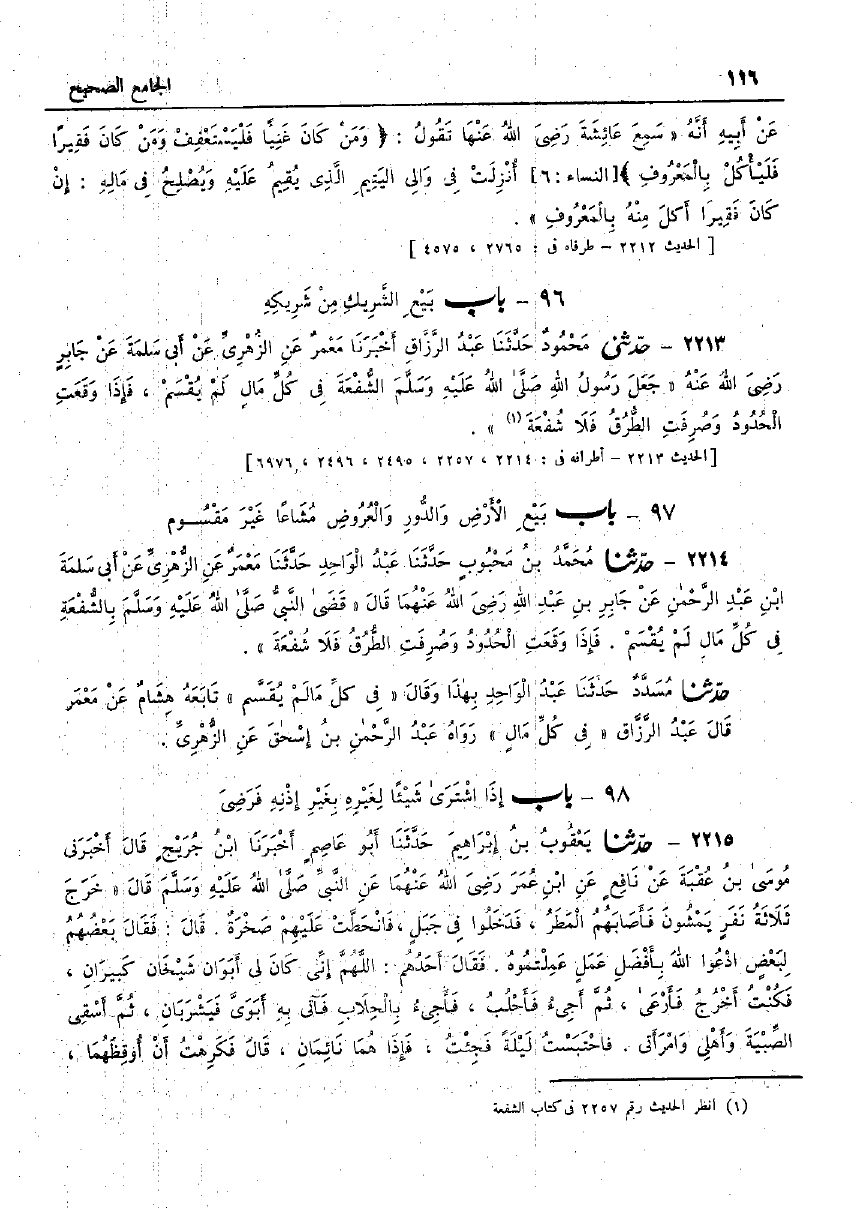 ١١٦
الجامع الصحيح
عَنْ أَبِيهِ أَنَّهُ « سَمِعَ عَائِشَةَ رَضِىَ اللهُ عَنْهَا تَقُولُ : ﴿ وَمَنْ كَانَ غَنِيًّا فَلْيَسْتَعْفِفْ وَمَنْ كَانَ فَقِيرًا
فَلْيَأْكُلْ بِالْمَعْرُوفِ ﴾[النساء : ٦] أُنْزِلَتْ فِى وَالِى الْيَتِيمِ الَّذِى يُقِيمُ عَلَيْهِ وَيُصْلِحُ فِى مَالِهِ : إِنْ
كَانَ فَقِيرًا أَكَلَ مِنْهُ بِالْمَعْرُوفِ » .
[ الحديث ٢٢١٢ - طرفاه فى : ٢٧٦٥ ، ٤٥٧٥ ]
٩٦ - باب بَيْعِ الشَّرِيكِ مِنْ شَرِيكِهِ
٢٢١٣ - حدّثنى مَحْمُودٌ حَدَّثَنَا عَبْدُ الرَّزَّاقِ أَخْبَرَنَا مَعْمَرٌ عَنِ الزُّهْرِىِّ عَنْ أَبِى سَلَمَةَ عَنْ جَابِرٍ
رَضِىَ اللهُ عَنْهُ « جَعَلَ رَسُولُ اللهِ صَلَّىٰ اللهُ عَلَيْهِ وَسَلَّمَ الشُّفْعَةَ فِى كُلِّ مَالٍ لَمْ يُقْسَمْ ، فَإِذَا وَقَعَتِ
الْحُدُودُ وَصُرِفَتِ الطُّرُقُ فَلَا شُفْعَةَ (١) » .
[الحديث ٢٢١٣ - أطرافه فى : ٢٢١٤ ، ٢٢٥٧ ، ٢٤٩٥ ، ٢٤٩٦ ، ٦٩٧٦]
٩٧ - باب بَيْعِ الْأَرْضِ وَالدُّورِ وَالْعُرُوضِ مُشَاعًا غَيْرَ مَقْسُومٍ
٢٢١٤ - حدّثنا مُحَمَّدُ بنُ مَحْبُوبٍ حَدَّثَنَا عَبْدُ الْوَاحِدِ حَدَّثَنَا مَعْمَرٌ عَنِ الزُّهْرِىِّ عَنْ أَبِى سَلَمَةَ
ابْنِ عَبْدِ الرَّحْمٰنِ عَنْ جَابِرِ بنِ عَبْدِ اللهِ رَضِىَ اللهُ عَنْهُمَا قَالَ « قَضَىٰ النَّبِىُّ صَلَّىٰ اللهُ عَلَيْهِ وَسَلَّمَ بِالشُّفْعَةِ
فِى كُلِّ مَالٍ لَمْ يُقْسَمْ . فَإِذَا وَقَعَتِ الْحُدُودُ وَصُرِفَتِ الطُّرُقُ فَلَا شُفْعَةَ » .
حدّثنا مُسَدَّدٌ حَدَّثَنَا عَبْدُ الْوَاحِدِ بِهٰذَا وَقَالَ « فِى كلِّ مَالَمْ يُقَسَّم » تَابَعَهُ هِشَامٌ عَنْ مَعْمَرٍ
قَالَ عَبْدُ الرَّزَّاقِ « فِى كُلِّ مَالٍ » رَوَاهُ عَبْدُ الرَّحْمٰنِ بنُ إِسْحٰقَ عَنِ الزُّهْرِىِّ .
٩٨ - باب إِذَا اشْتَرَىٰ شَيْئًا لِغَيْرِهِ بِغَيْرِ إِذْنِهِ فَرَضِىَ
٢٢١٥ - حدّثنا يَعْقُوبُ بنُ إِبْرَاهِيمَ حَدَّثَنَا أَبُو عَاصِمٍ أَخْبَرَنَا ابْنُ جُرَيْجٍ قَالَ أَخْبَرَنِى
مُوسَىٰ بنُ عُقْبَةَ عَنْ نَافِعٍ عَنِ ابْنِ عُمَرَ رَضِىَ اللهُ عَنْهُمَا عَنِ النَّبِىِّ صَلَّىٰ اللهُ عَلَيْهِ وَسَلَّمَ قَالَ « خَرَجَ
ثَلَاثَةُ نَفَرٍ يَمْشُونَ فَأَصَابَهُمُ الْمَطَرُ ، فَدَخَلُوا فِى جَبَلٍ ، فَانْحَطَّتْ عَلَيْهِمْ صَخْرَةٌ . قَالَ : فَقَالَ بَعْضُهُمْ
لِبَعْضٍ ادْعُوا اللهَ بِأَفْضَلِ عَمَلٍ عَمِلْتُمُوهُ . فَقَالَ أَحَدُهُم : اللَّهُمَّ إِنِّى كَانَ لِى أَبَوَانِ شَيْخَانِ كَبِيرَانِ ،
فَكُنْتُ أَخْرُجُ فَأَرْعَىٰ ، ثُمَّ أَجِىءُ فَأَحْلُبُ ، فَأَجِىءُ بِالْحِلَابِ فَآتِى بِهِ أَبَوَىَّ فَيَشْرَبَانِ ، ثُمَّ أَسْقِى
الصِّبْيَةَ وَأَهْلِى وَامْرَأَتِى . فَاحْتَبَسْتُ لَيْلَةً فَجِئْتُ ، فَإِذَا هُمَا نَائِمَانِ ، قَالَ فَكَرِهْتُ أَنْ أُوقِظَهُمَا ،
(١) أنظر الحديث رقم ٢٢٥٧ فى كتاب الشفعة